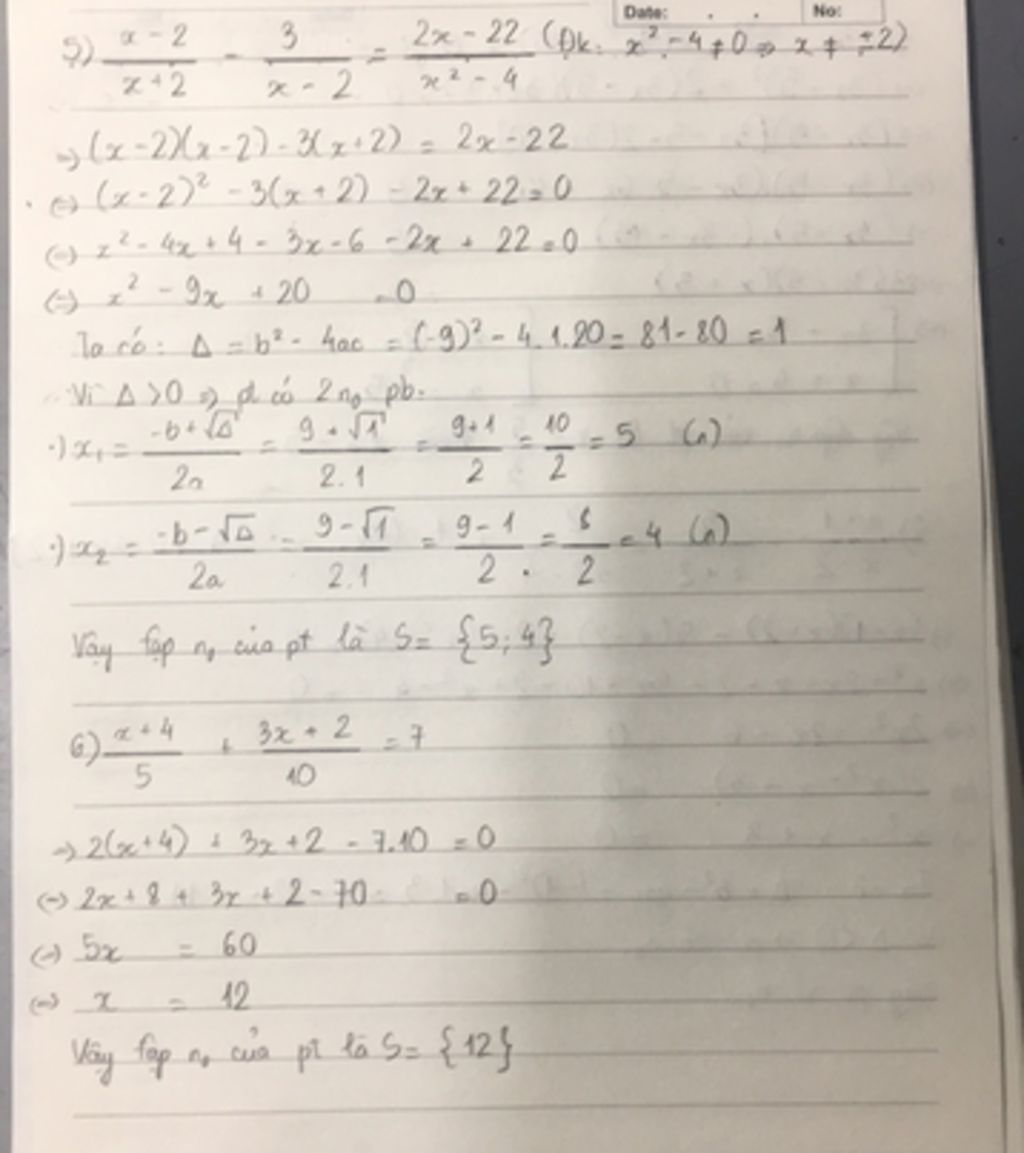 Date: . . No:
5) \frac{x-2}{x+2} - \frac{3}{x-2} = \frac{2x-22}{x²-4} (Đk: x²-4 ≠ 0 => x ≠ ±2)
=> (x-2)(x-2) - 3(x+2) = 2x-22
(=) (x-2)² - 3(x+2) - 2x + 22 = 0
(=) x² - 4x + 4 - 3x - 6 - 2x + 22 = 0
(=) x² - 9x + 20 = 0
Ta có: Δ = b² - 4ac = (-9)² - 4.1.20 = 81-80 = 1
Vì Δ > 0 => pt có 2 n₀ pb.
·) x₁ = \frac{-b+√Δ}{2a} = \frac{9+√1}{2.1} = \frac{9+1}{2} = \frac{10}{2} = 5 (n)
·) x₂ = \frac{-b-√Δ}{2a} = \frac{9-√1}{2.1} = \frac{9-1}{2} = \frac{8}{2} = 4 (n)
Vậy tập n₀ của pt là S = {5; 4}
6) \frac{x+4}{5} + \frac{3x+2}{10} = 7
=> 2(x+4) + 3x+2 - 7.10 = 0
(=) 2x+8 + 3x + 2 - 70 = 0
(=) 5x = 60
(=) x = 12
Vậy tập n₀ của pt là S = {12}